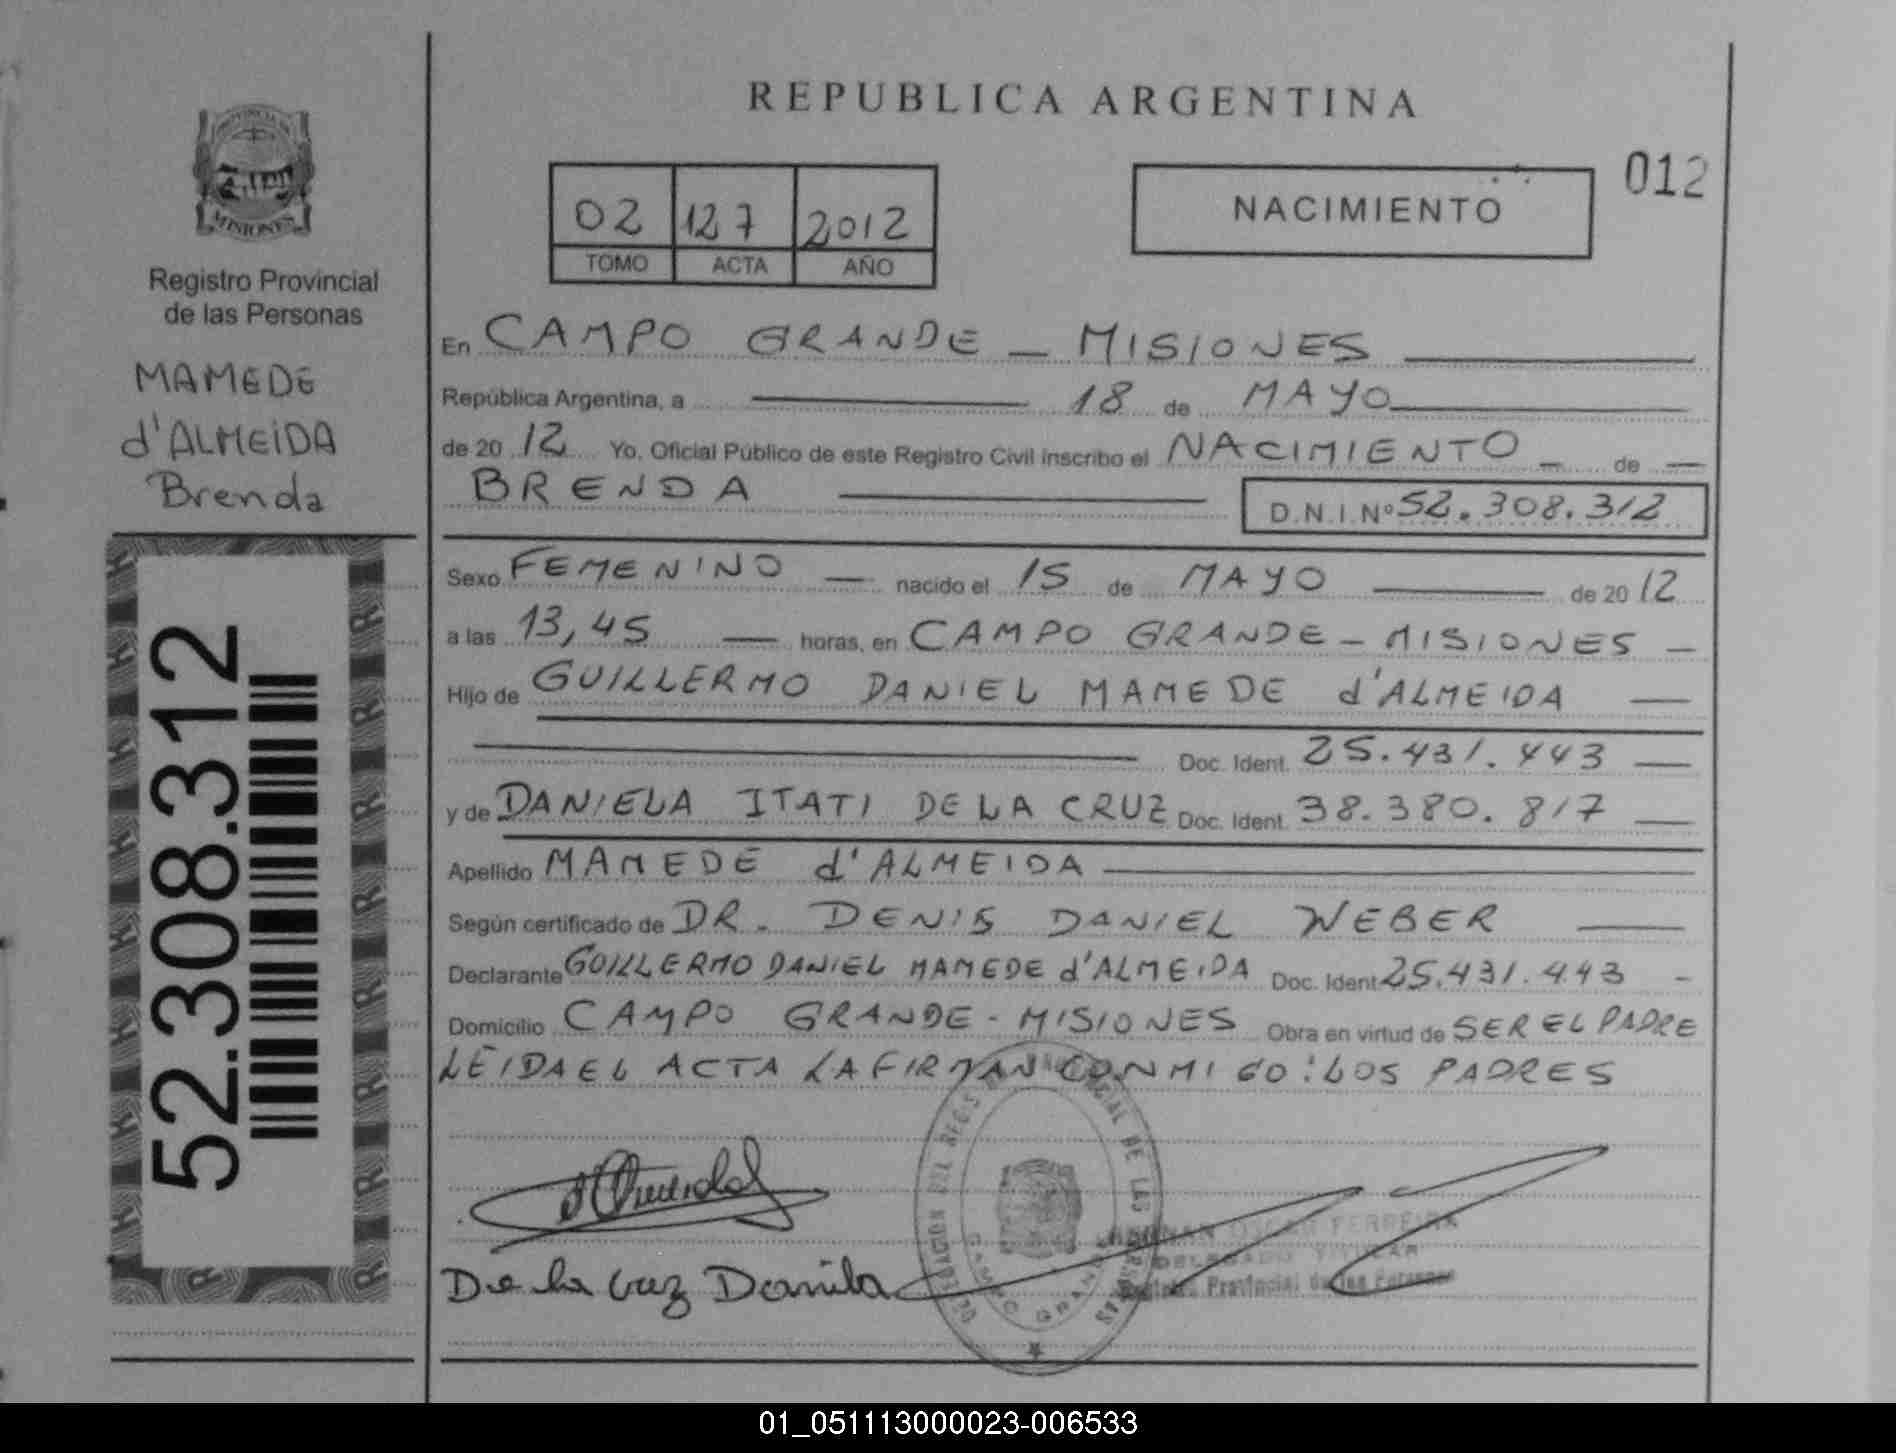 REPUBLICA ARGENTINA
012
02 127 2012
TOMO ACTA AÑO
NACIMIENTO
PROVINCIA DE
MISIONES
Registro Provincial
de las Personas
MAMEDE
d'ALMEIDA
Brenda
52.308.312
En CAMPO GRANDE - MISIONES
República Argentina, a 18 de MAYO
de 2012 Yo, Oficial Público de este Registro Civil inscribo el NACIMIENTO de
BRENDA D.N.I.Nº 52.308.312
Sexo FEMENINO nacido el 15 de MAYO de 2012
a las 13,45 horas, en CAMPO GRANDE - MISIONES
Hijo de GUILLERMO DANIEL MAMEDE d'ALMEIDA
Doc. Ident. 25.431.443
y de DANIELA ITATI DE LA CRUZ Doc. Ident. 38.380.817
Apellido MAMEDE d'ALMEIDA
Según certificado de DR. DENIS DANIEL WEBER
Declarante GUILLERMO DANIEL MAMEDE d'ALMEIDA Doc. Ident. 25.431.443
Domicilio CAMPO GRANDE - MISIONES Obra en virtud de SER EL PADRE
LEIDA EL ACTA LA FIRMAN CONMIGO: LOS PADRES
De la Cruz Daniela
DELEGACION DEL REGISTRO PROVINCIAL DE LAS PERSONAS
CAMPO GRANDE
OSCAR FERREIRA
DELEGADO TITULAR
Registro Provincial de las Personas
01_051113000023-006533